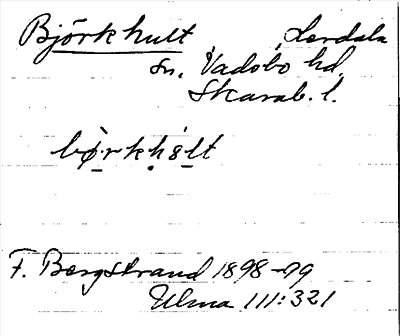 Björkhult Lerdala
sn. Vadsbo hd.
Skarab. l.
bø̱rkḥåḻt
F. Bergstrand 1898-99
Ulma 111:321